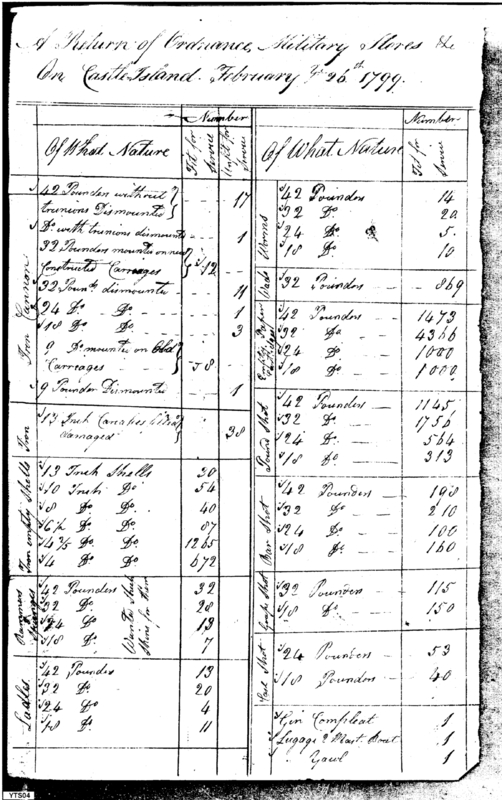 A Return of Ordnance, Military Stores &c
On Castle Island. February ye 26th 1799.
Number
Of What Nature
Fit for Service
Unfit for Service
Iron Cannon
42 Pounders without
trunions Dismounted
17
Do. with trunions dismounted
1
32 Pounders mounted on new
Constructed Carriages
12
32 Pounds dismounted
11
24 Do. Do.
1
18 Do. Do.
3
9 Do. mounted on Old
Carriages
8
9 Pounder Dismounted
1
Iron
13 Inch
damaged
38
Iron empty Shells
13 Inch Shells 30
10 Inch Do. 54
8 Do. Do. 40
6 1/2 Do. Do. 87
4 2/5 Do. Do. 1265
4 Do. 672
Rammers & Spunges
Wants
for them
42 Pounders 32
32 Do. 28
24 Do. 13
18 Do. 7
Ladles
42 Pounders 13
32 Do. 20
24 Do. 4
18 Do. 11
Number
Of What Nature
Fit for Service
Worms
42 Pounders 14
32 Do. 20
24 Do. 5
18 Do. 10
Wads
32 Pounders 869
Empty Paper Cartridges
42 Pounders 1473
32 Do 4366
24 Do. 1000
18 Do. 1000
Round Shot
42 Pounders 1145
32 Do. 1756
24 Do. 564
18 Do. 313
Bar Shot
42 Pounders 198
32 Do. 210
24 Do. 100
18 Do. 160
Grape Shot
32 Pounders 115
18 Do. 150
Case Shot
24 Pounders 53
18 Pounders 40
Gin Compleat 1
Lugage 2 Mast Boat 1
Yawl 1
YTS04